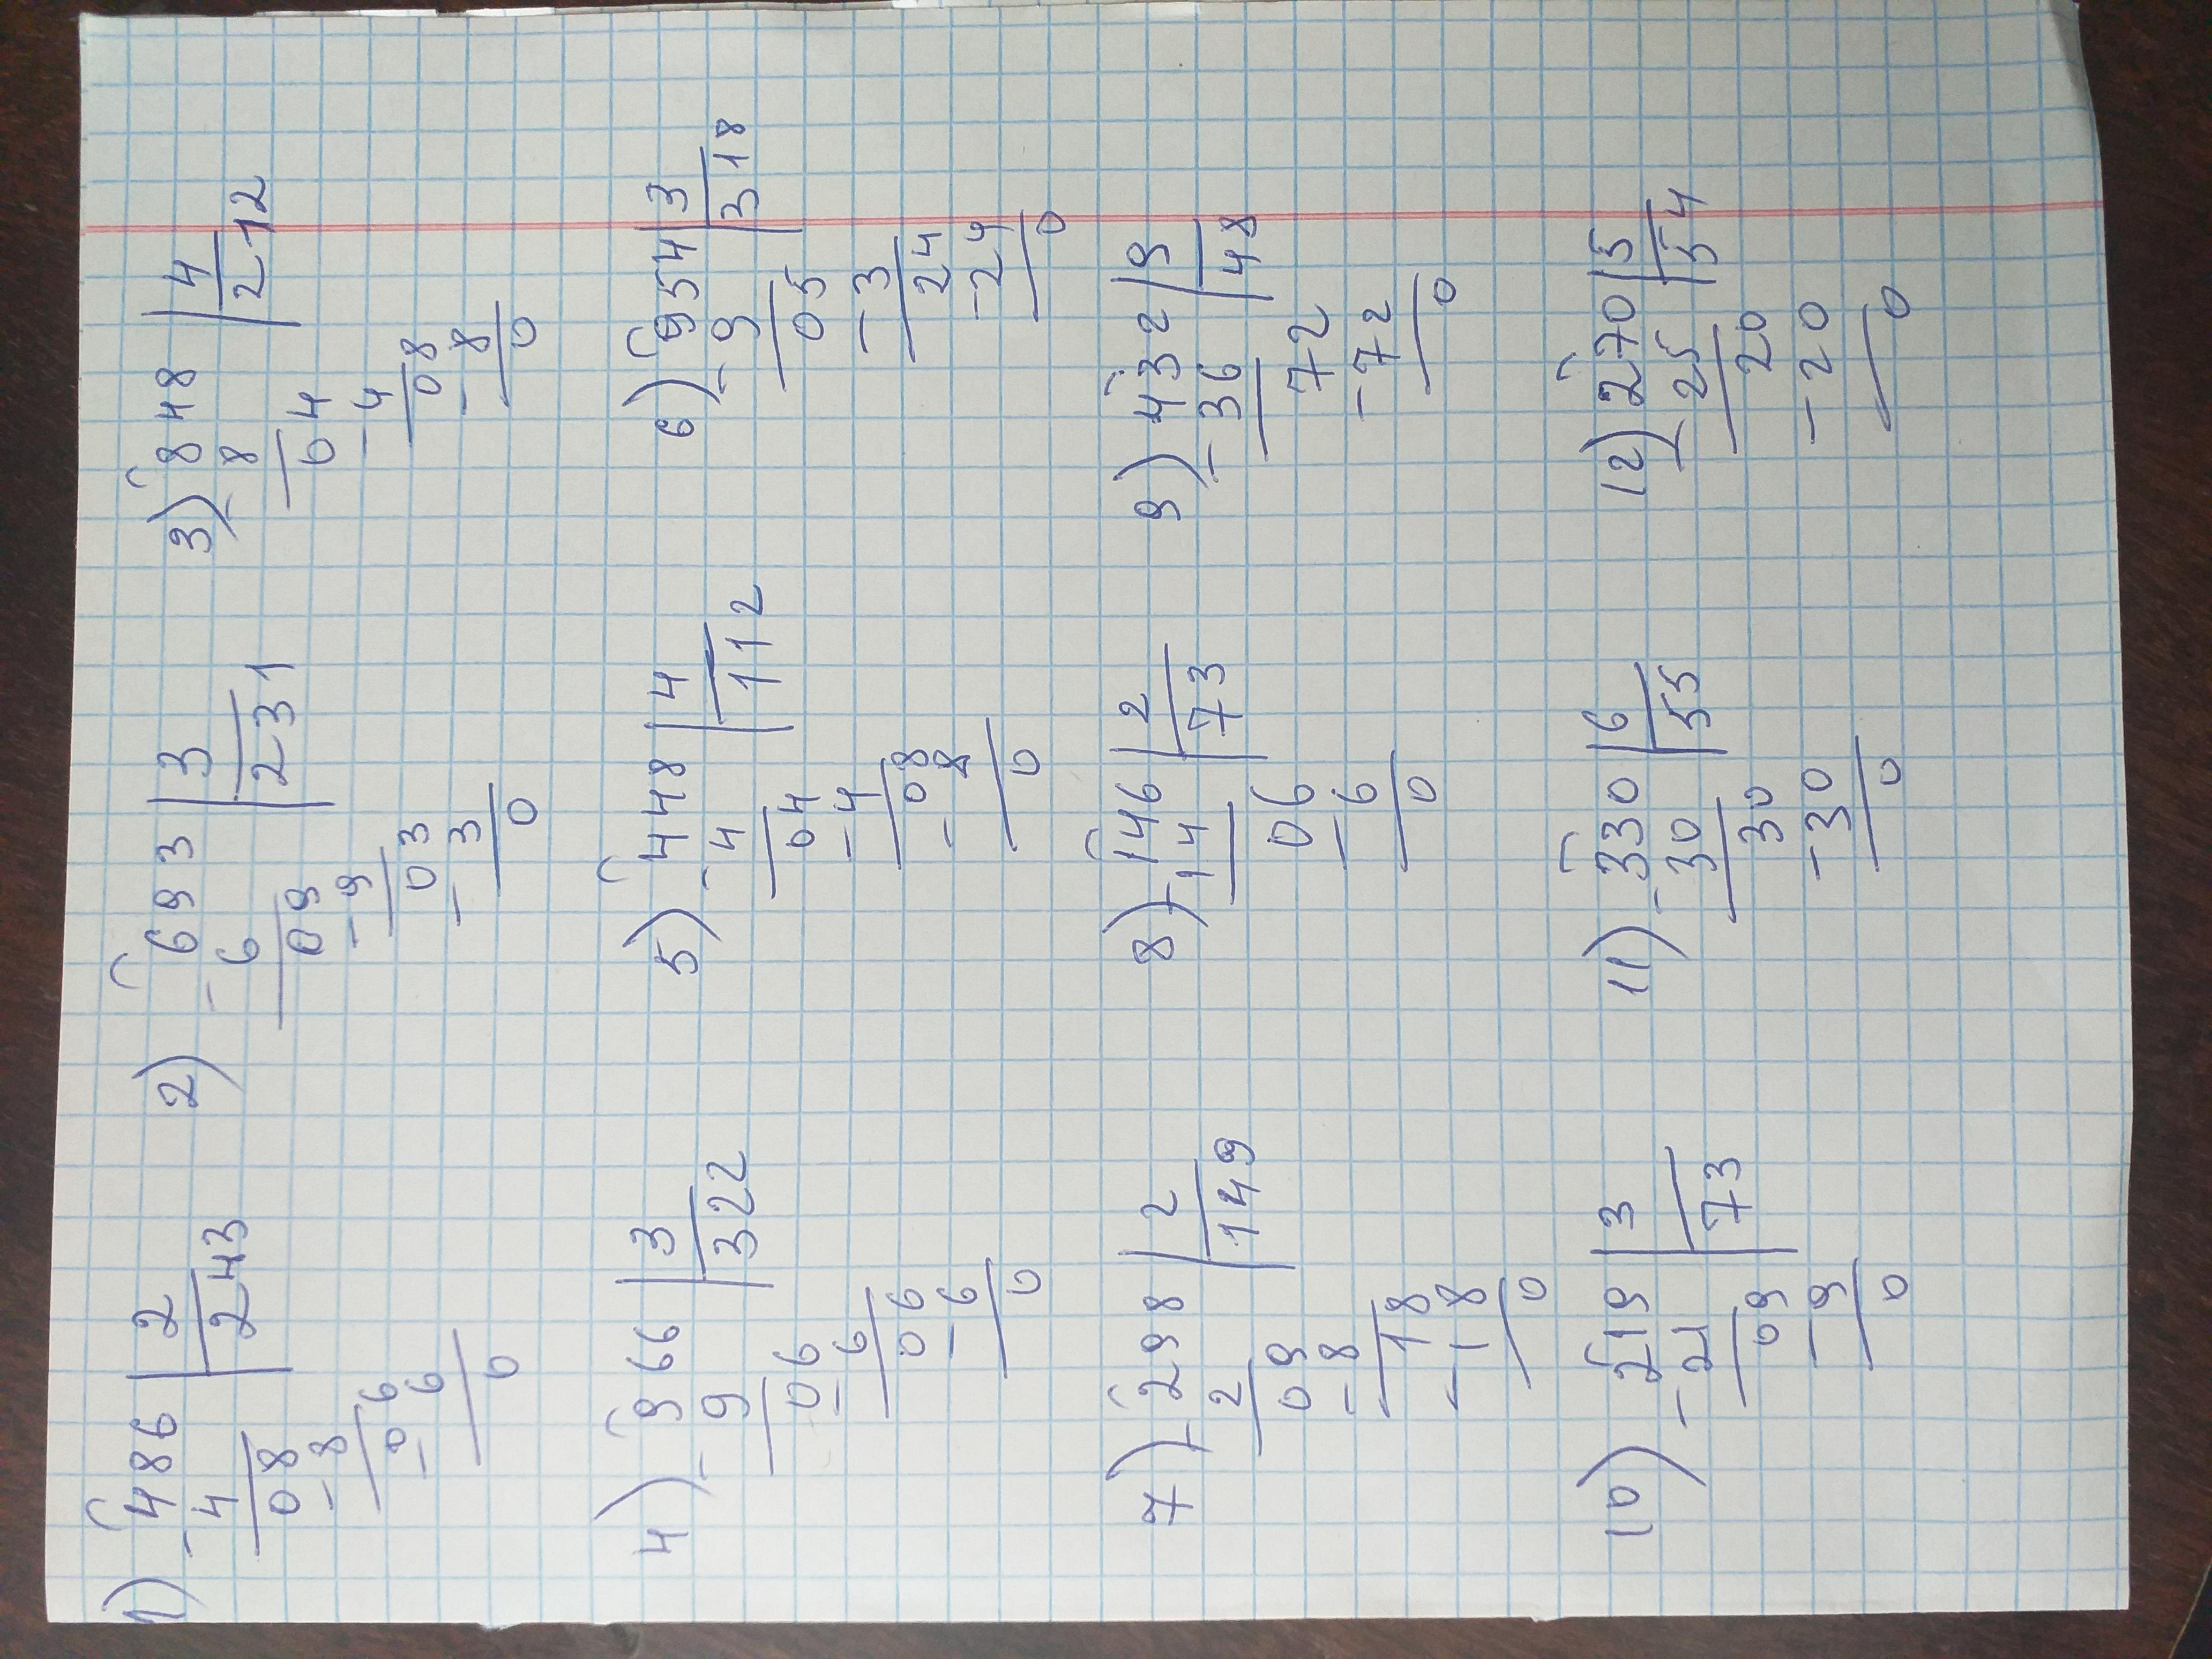 1) 486 | 2
- 4 | 243
08
- 8
06
- 6
0
2) 693 | 3
- 6 | 231
09
- 9
03
- 3
0
3) 848 | 4
- 8 | 212
04
- 4
08
- 8
0
4) 966 | 3
- 9 | 322
06
- 6
06
- 6
0
5) 448 | 4
- 4 | 112
04
- 4
08
- 8
0
6) 954 | 3
- 9 | 318
05
- 3
24
- 24
0
7) 298 | 2
- 2 | 149
09
- 8
18
- 18
0
8) 146 | 2
- 14 | 73
06
- 6
0
9) 432 | 9
- 36 | 48
72
- 72
0
10) 219 | 3
- 21 | 73
09
- 9
0
11) 330 | 6
- 30 | 55
30
- 30
0
12) 270 | 5
- 25 | 54
20
- 20
0